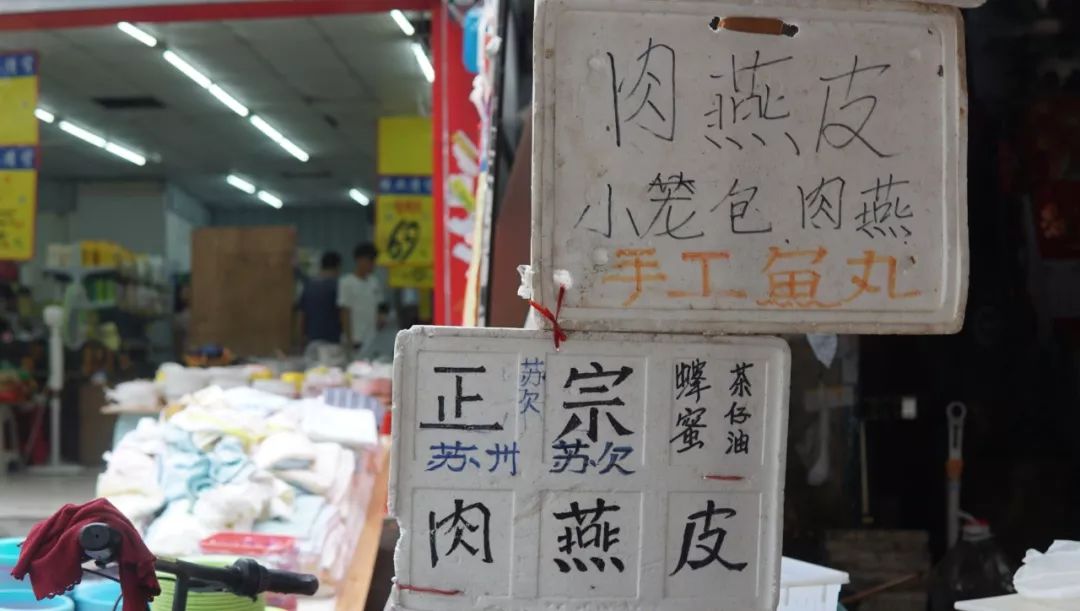 肉燕皮
小笼包 肉燕
手工魚丸
正 苏欠 宗 蜂蜜 茶仔油
苏州 苏欠
肉燕皮
69